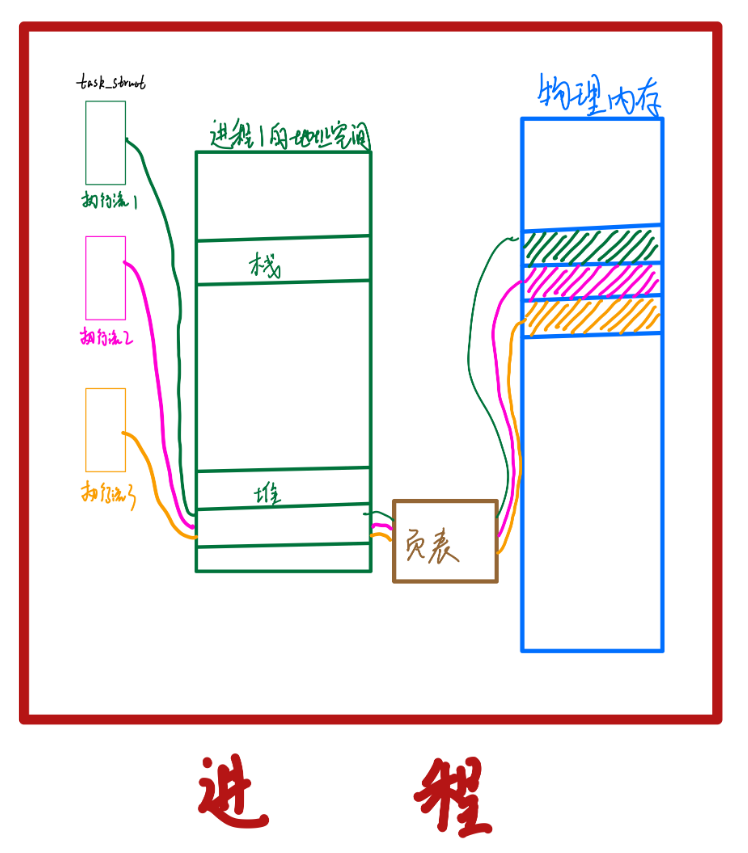 task_struct
执行流1
执行流2
执行流3
进程1的地址空间
栈
堆
页表
物理内存
进程